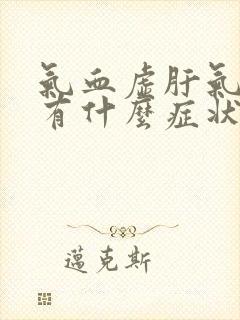 氣血虛肝氣
有什麼症狀
邁克斯